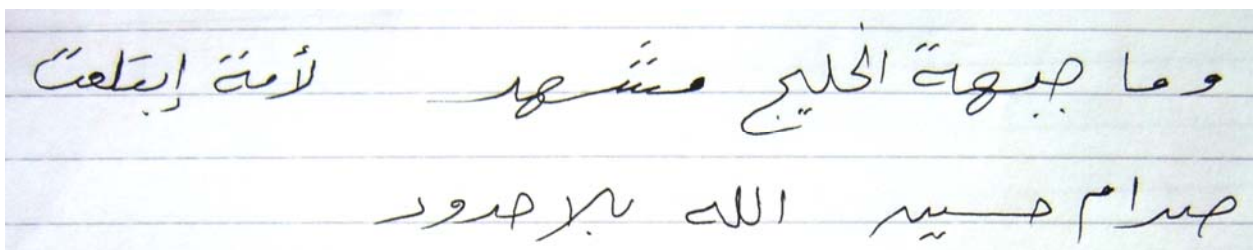 وما جبهة الخليج مشهد لأمة إبتلعت
صدام حسين الله بلا حدود